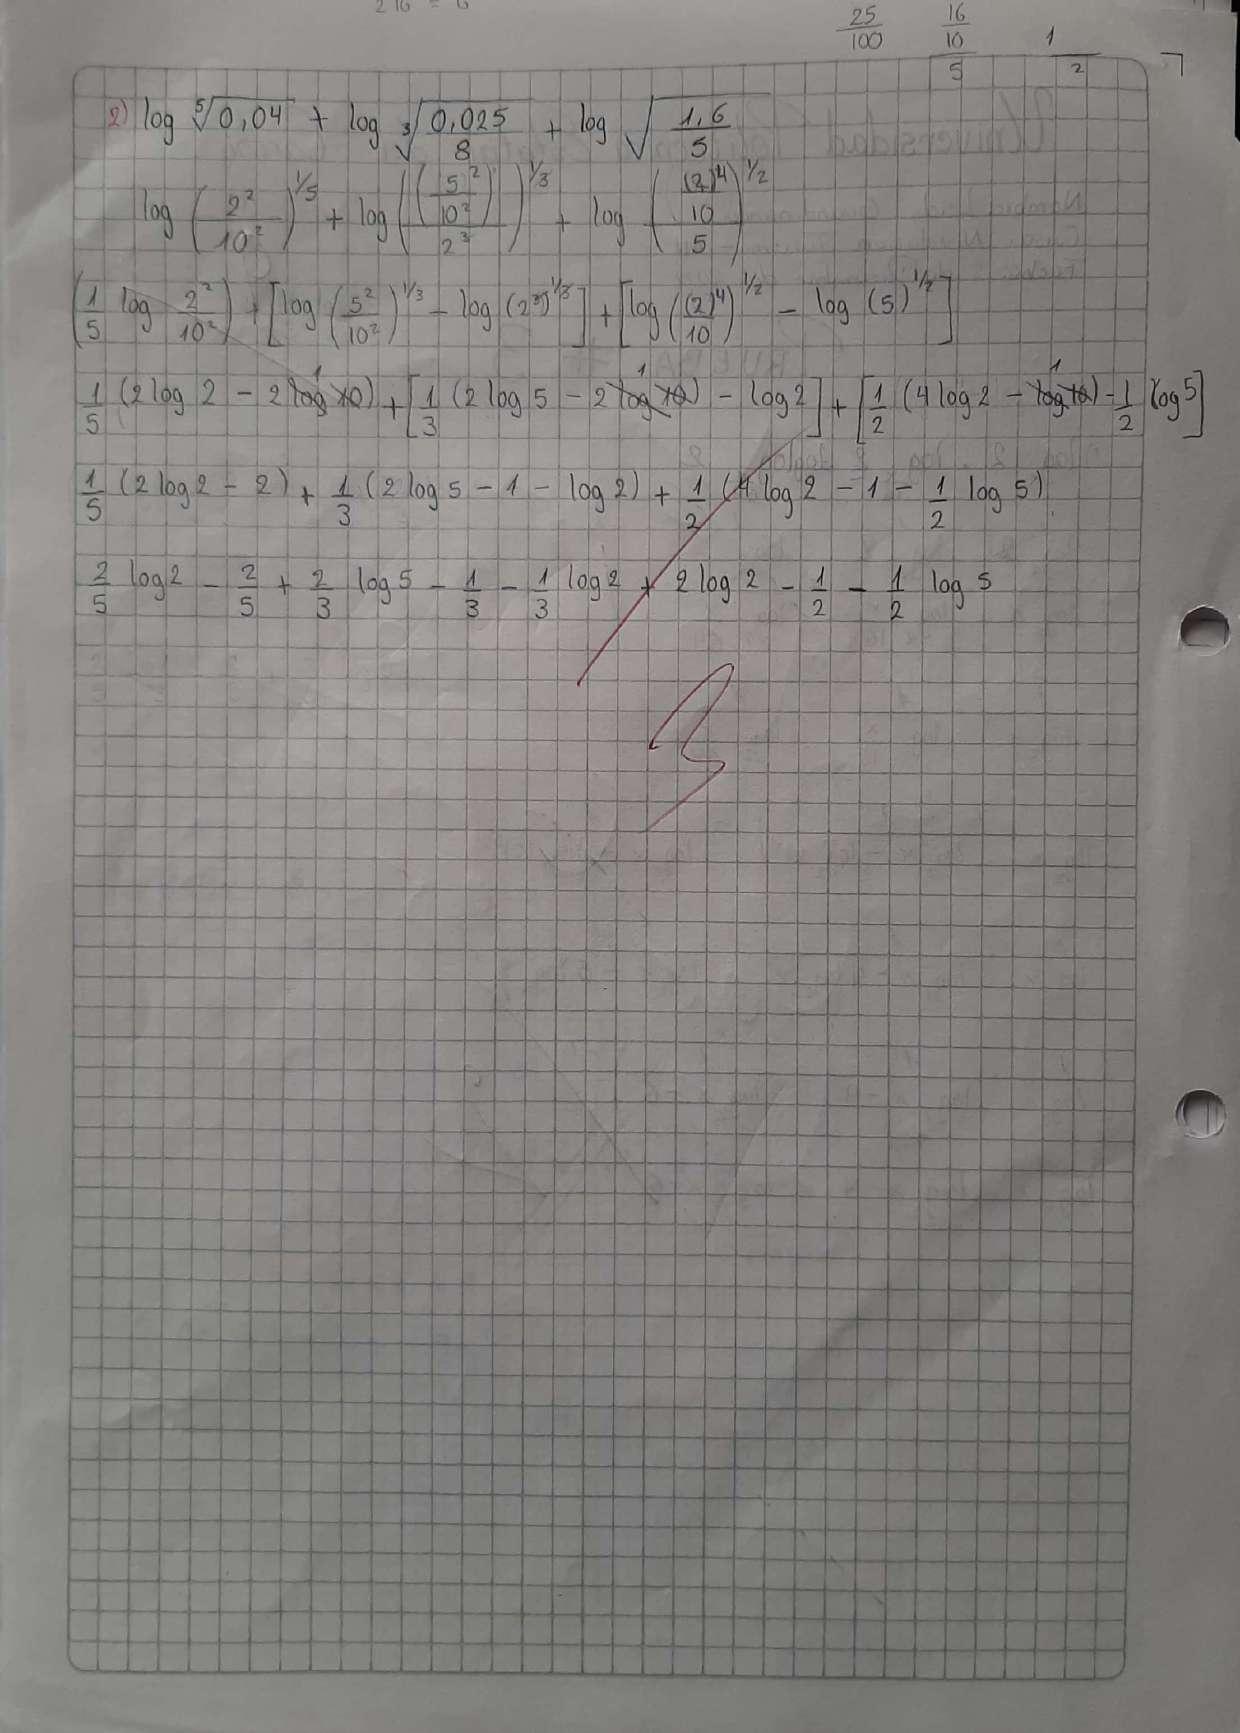 216 = 6
25/100 16/10/5 1/2
2) log ⁵√0,04 + log ³√(0,025/8) + log √(1,6/5)
log (2²/10²)^1/5 + log (((5²/10²))/2³)^1/3 + log (((2)⁴/10)/5)^1/2
(1/5 log 2²/10²) + [log (5²/10²)^1/3 - log (2³)^1/3] + [log ((2)⁴/10)^1/2 - log (5)^1/2]
1/5 (2 log 2 - 2 log 10) + [1/3 (2 log 5 - 2 log 10) - log 2] + [1/2 (4 log 2 - log 10) - 1/2 log 5]
1/5 (2 log 2 - 2) + 1/3 (2 log 5 - 1 - log 2) + 1/2 (4 log 2 - 1 - 1/2 log 5)
2/5 log 2 - 2/5 + 2/3 log 5 - 1/3 - 1/3 log 2 + 2 log 2 - 1/2 - 1/2 log 5